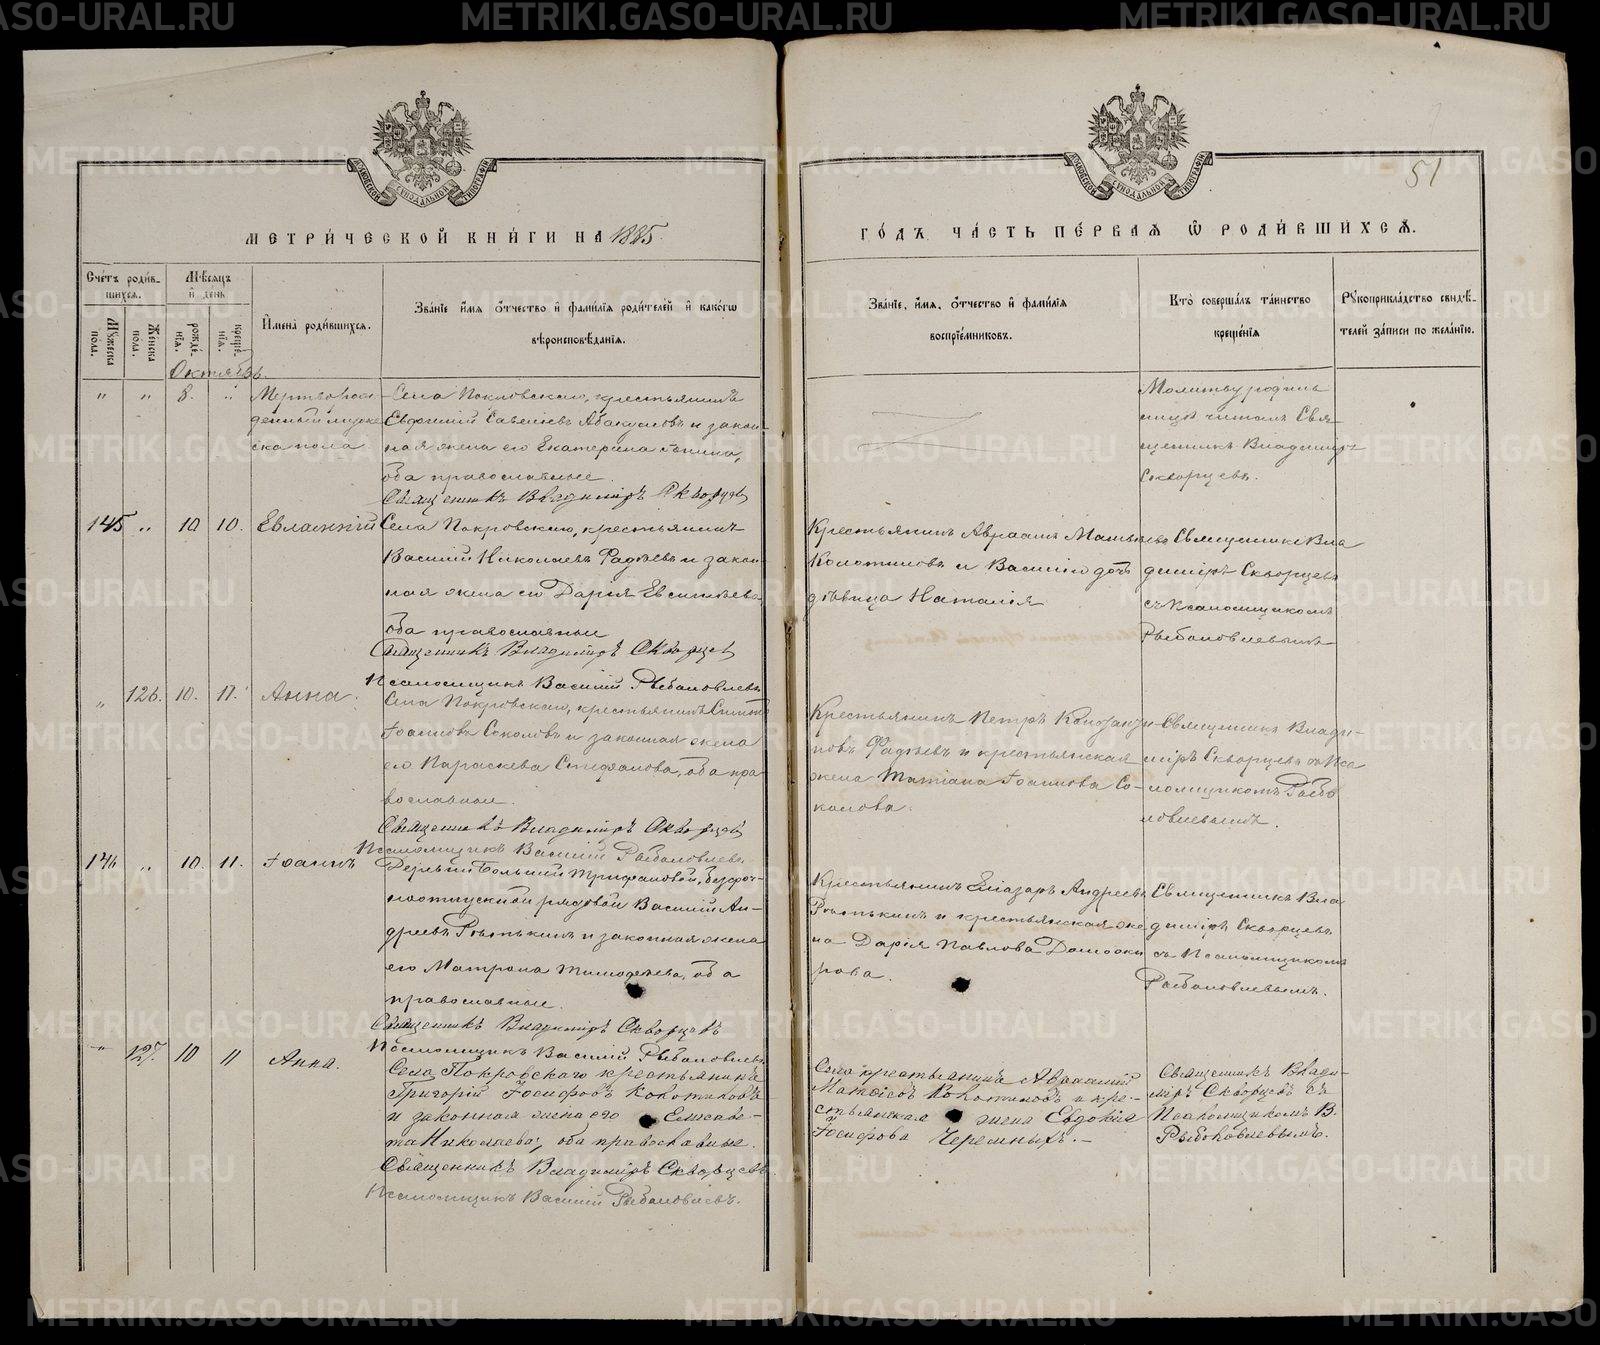 МЕТРИЧЕСКОЙ КНИГИ НА 1885
ГОДЪ ЧАСТЬ ПЕРВАЯ Ѿ РОДИВШИХСЯ.
51
Счетъ родив-
шихся.
Мѣсяцъ
и день
Имена родившихся.
Званіе имя отчество и фамилія родителей и какогѡ
вѣроисповѣданія.
Званіе, имя, отчество и фамилія
воспріемниковъ.
Кто совершалъ таинство
крещенія
Рукоприкладство свидѣ-
телей записи по желанію.
Мужеска
пола.
Женска
пола.
рожде-
нія.
креще-
нія.
Октябрь.
" " 8. "
Мертворож-
денный муже
ска пола
Села Покровскаго, крестьянинъ
Савеліевъ Абакумовъ и закон-
ная жена его Екатерина
оба православные.
Священникъ Владиміръ Скворцевъ
Молитву родиль
ницѣ читалъ Свя-
щенникъ Владиміръ
Скворцевъ.
145 " 10 10. Евлампій
Села Покровскаго, крестьянинъ
Василій Николаевъ Фадѣевъ и закон-
ная жена его Дарія Евсигнѣева,
оба православные
Священникъ Владиміръ Скворцевъ
Псаломщикъ Василій Рыболовлевъ
Крестьянинъ Авраамъ Матѳіевъ
Колотиловъ и Василія дочь
дѣвица Наталія
Священникъ Вла
диміръ Скворцевъ
съ Псаломщикомъ
Рыболовлевымъ
" 126. 10. 11. Анна.
Села Покровскаго, крестьянинъ
Іоанновъ Соколовъ и законная жена
его Параскева Стефанова, оба пра
вославные.
Священникъ Владиміръ Скворцевъ
Псаломщикъ Василій Рыболовлевъ
Крестьянинъ Петръ
новъ Фадѣевъ и крестьянская
жена Татіана Іоаннова Со-
колова.
Священникъ Влади-
міръ Скворцевъ съ Пса
ломщикомъ Рыбо
ловлевымъ.
146 " 10. 11. Іоаннъ
Дер. Большой Трифановой, безсроч-
ноотпускной рядовой Василій Ан-
дреевъ и законная жена
его Матрона Тимоѳеева, оба
православные.
Священникъ Владиміръ Скворцевъ
Псаломщикъ Василій Рыболовлевъ
Крестьянинъ Елазаръ Андреевъ
и крестьянская же
на Дарія Павлова
рова.
Священникъ Вла
диміръ Скворцевъ
съ Псаломщикомъ
Рыболовлевымъ.
" 127. 10 11 Анна.
Села Покровскаго крестьянинъ
Григорій Іосифовъ Колотиловъ
и законная жена его Елисаве-
та Николаева, оба православные.
Священникъ Владиміръ Скворцевъ
Псаломщикъ Василій Рыболовлевъ.
Села крестьянинъ Авраамій
Матѳіевъ Колотиловъ и кре-
стьянская жена Евдокія
Іосифова Черемныхъ.-
Священникъ Влади-
міръ Скворцевъ съ
Псаломщикомъ В.
Рыболовлевымъ.